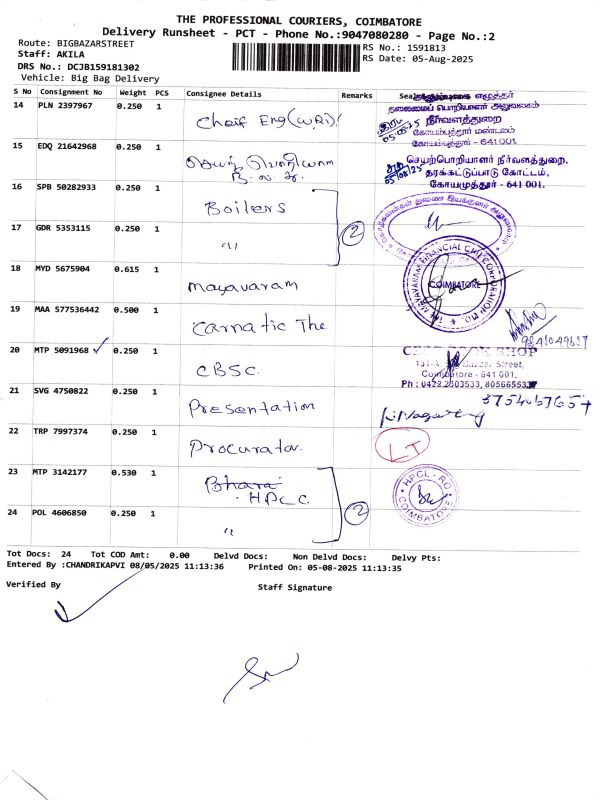 THE PROFESSIONAL COURIERS, COIMBATORE
Delivery Runsheet - PCT - Phone No.:9047080280 - Page No.:2
Route: BIGBAZARSTREET
Staff: AKILA
DRS No.: DCJB159181302
Vehicle: Big Bag Delivery
RS No.: 1591813
RS Date: 05-Aug-2025
S No Consignment No Weight PCS Consignee Details Remarks
14 PLN 2397967 0.250 1 Cheif Eng (WRI)
நீர்வளத்துறை
கோயம்புத்தூர் மண்டலம்
கோயம்புத்தூர் - 641 001.
15 EDQ 21642968 0.250 1
செயற்பொறியாளர் நீர்வளத்துறை,
தரக்கட்டுப்பாடு கோட்டம்,
கோயமுத்தூர் - 641 001.
16 SPB 50282933 0.250 1 Boilers
2
17 GDR 5353115 0.250 1 "
18 MYD 5675904 0.615 1 mayavaram
COIMBATORE
19 MAA 577536442 0.500 1 Carnatic The
20 MTP 5091968 0.250 1 CBSC
Coimbatore - 641 001.
21 SVG 4750822 0.250 1 Presentation
22 TRP 7997374 0.250 1 Procurator
LT
23 MTP 3142177 0.530 1 Bhara
HPLC
HPCL - RO
COIMBATORE
2
24 POL 4606850 0.250 1 "
Tot Docs: 24 Tot COD Amt: 0.00 Delvd Docs: Non Delvd Docs: Delvy Pts:
Entered By :CHANDRIKAPVI 08/05/2025 11:13:36 Printed On: 05-08-2025 11:13:35
Verified By Staff Signature